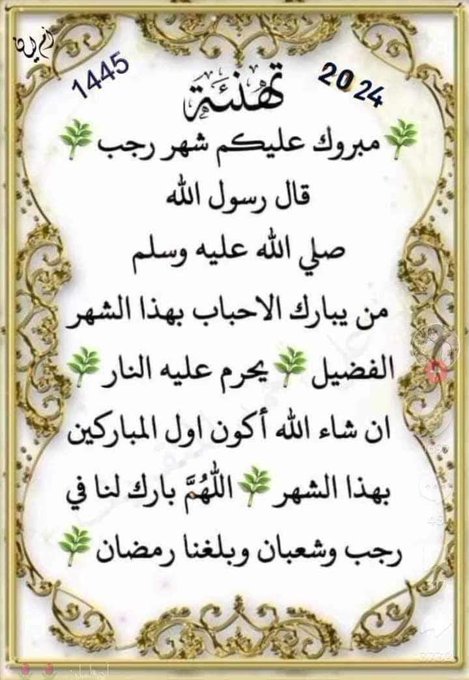 1445
2024
تهنئة
مبروك عليكم شهر رجب
قال رسول الله
صلي الله عليه وسلم
من يبارك الاحباب بهذا الشهر
الفضيل يحرم عليه النار
ان شاء الله أكون اول المباركين
بهذا الشهر اللهُمَّ بارك لنا في
رجب وشعبان وبلغنا رمضان